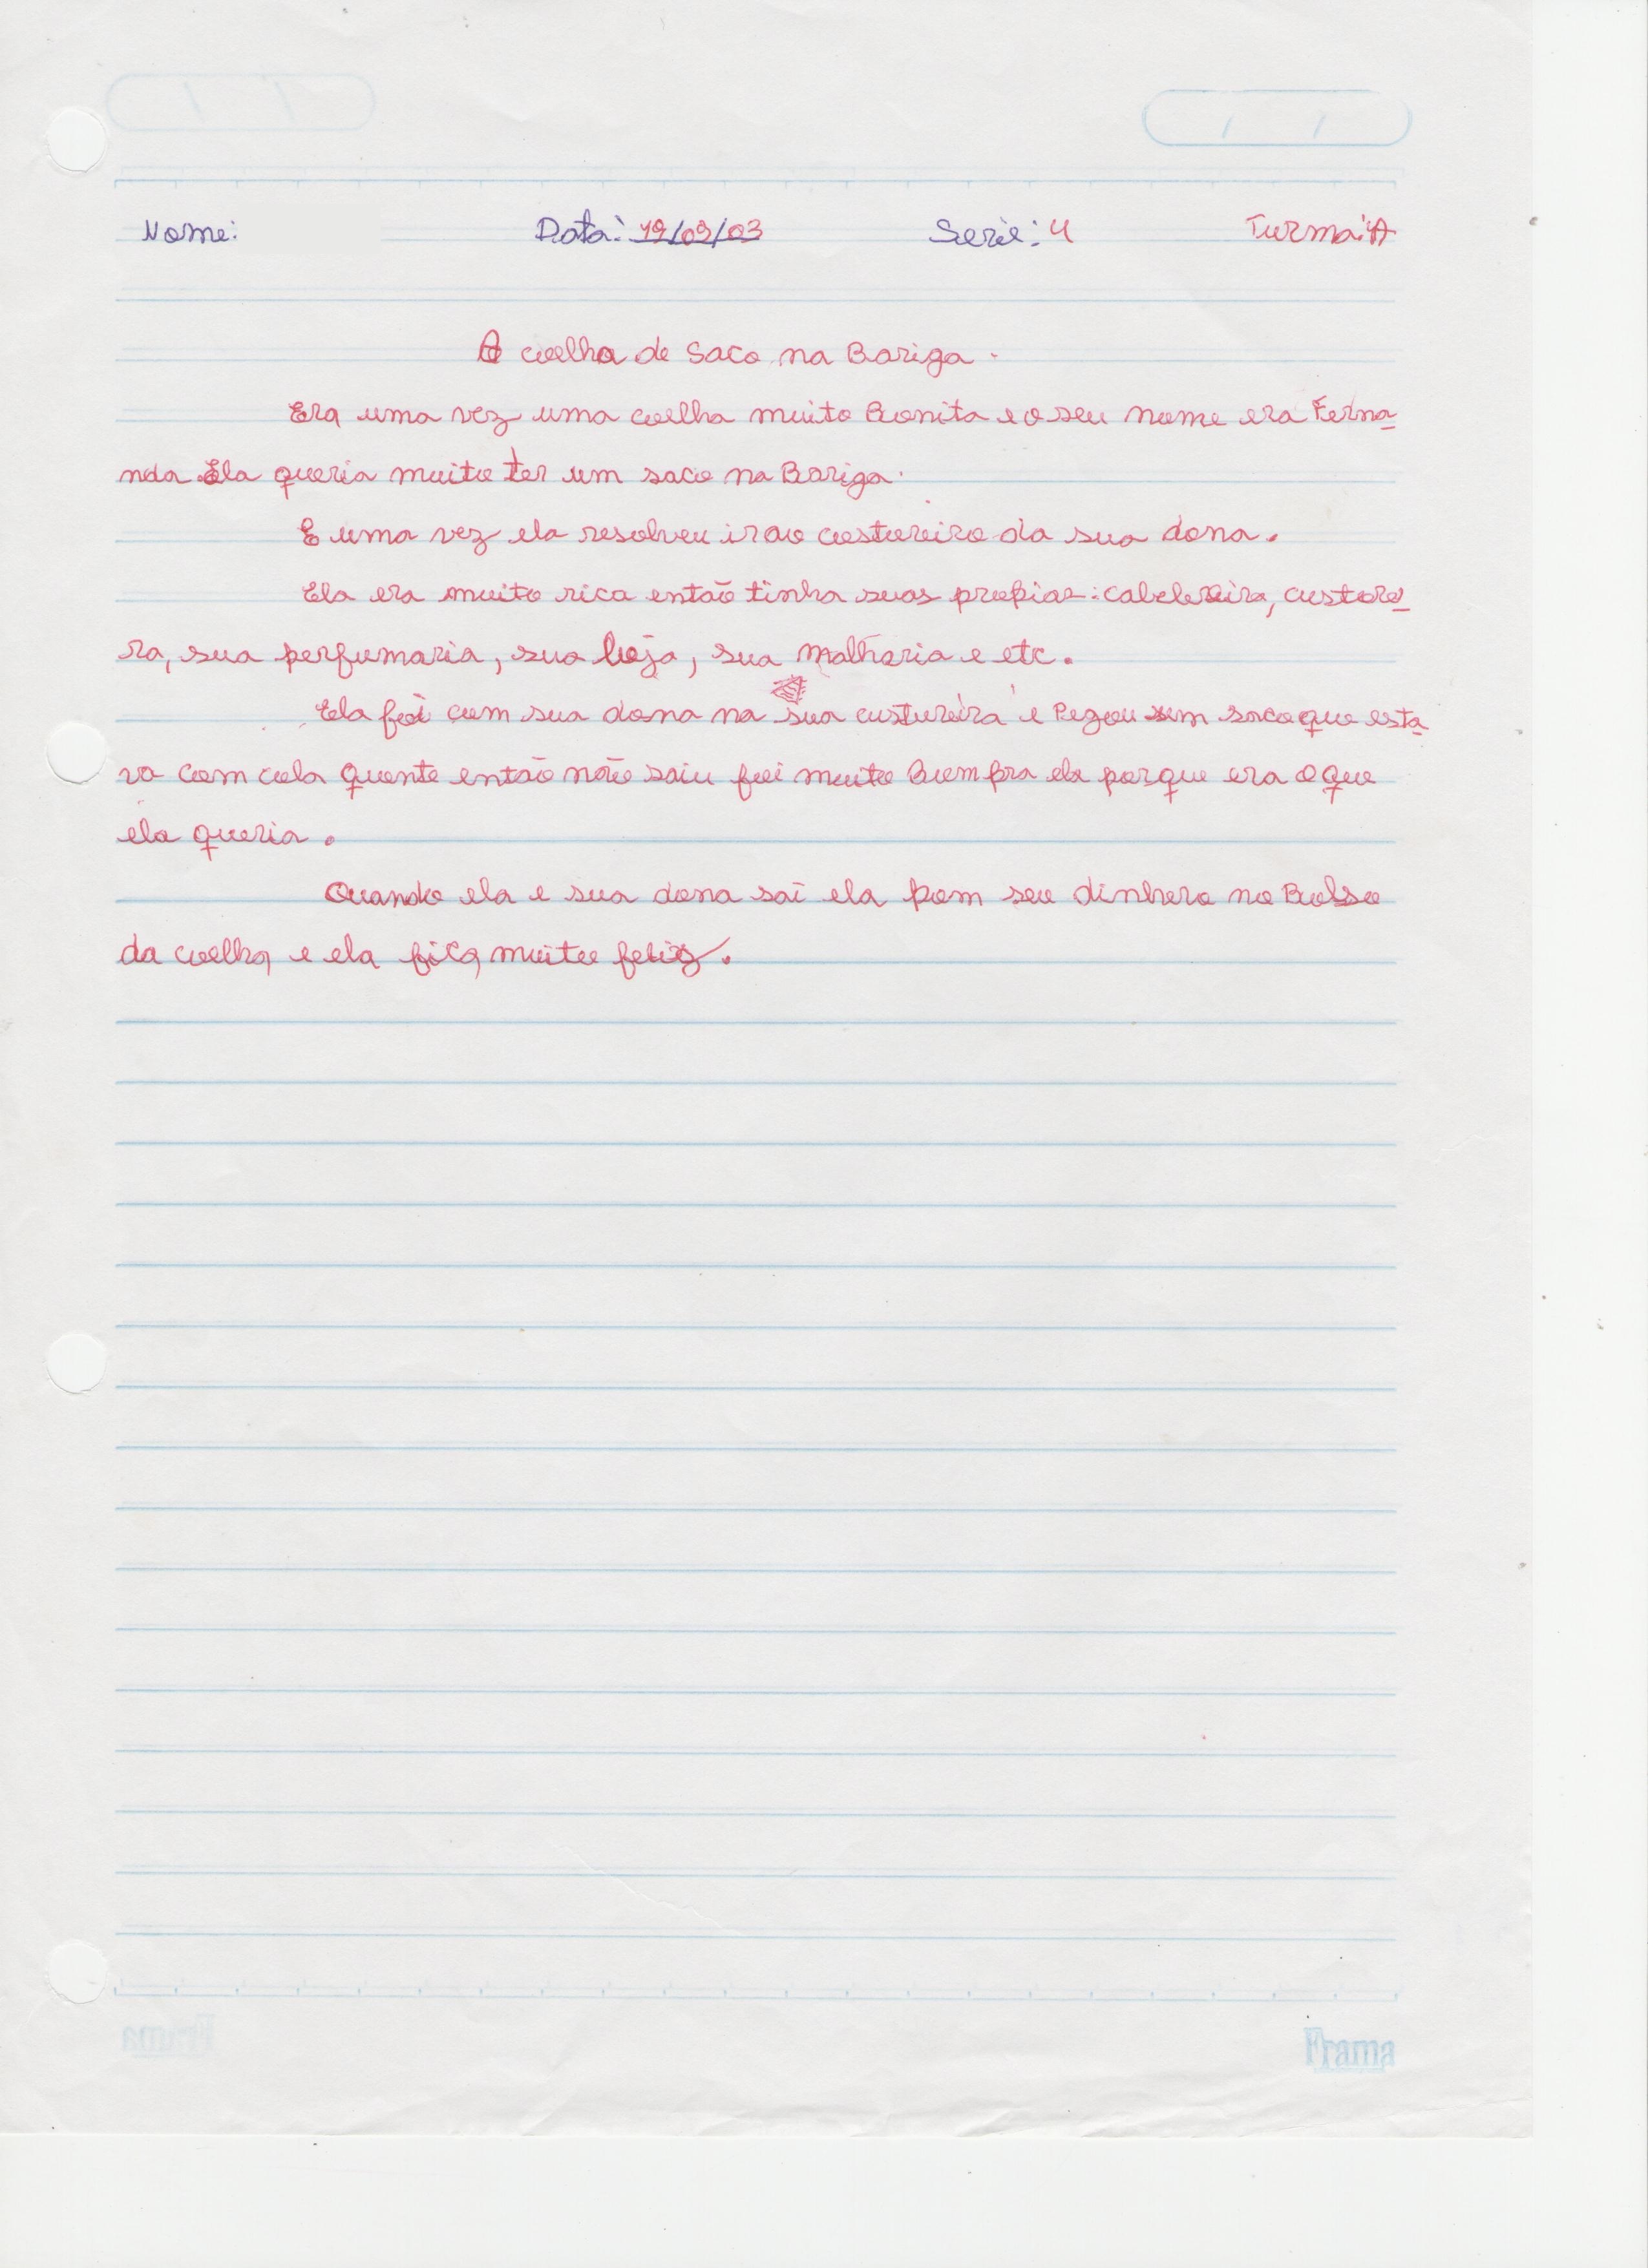 Nome: Data: 19/09/03 Serie: 4 Turma: A
A coelha de Saco na Bariga.
Era uma vez uma coelha muito Bonita e o seu nome era Ferna-
nda. Ela queria muito ter um saco na Bariga.
E uma vez ela resolveu ir ao costureiro da sua dona.
Ela era muito rica então tinha suas propias: cabelereira, custore-
ra, sua perfumaria, sua loja, sua Malharia e etc.
Ela foi com sua dona na sua custureira e Pegou um saco que esta-
va com cola quente então não saiu foi muito Bom pra ela porque era o que
ela queria.
Quando ela e sua dona sai ela pom seu dinhero no Bolso
da coelha e ela fica muito feliz.
Frama